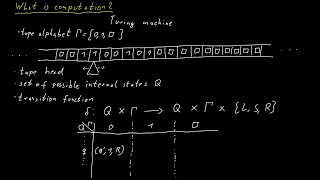 What is computation?
Turing machine
• tape alphabet Γ = {0, 1, □}
... □ □ □ □ 0 1 1 0 1 0 □ □ □ □ □ □ □ □ ...
• tape head
• set of possible internal states Q
• transition function
δ: Q × Γ → Q × Γ × {L, S, R}
Q Γ 0 1 □
q (q', 1, R)